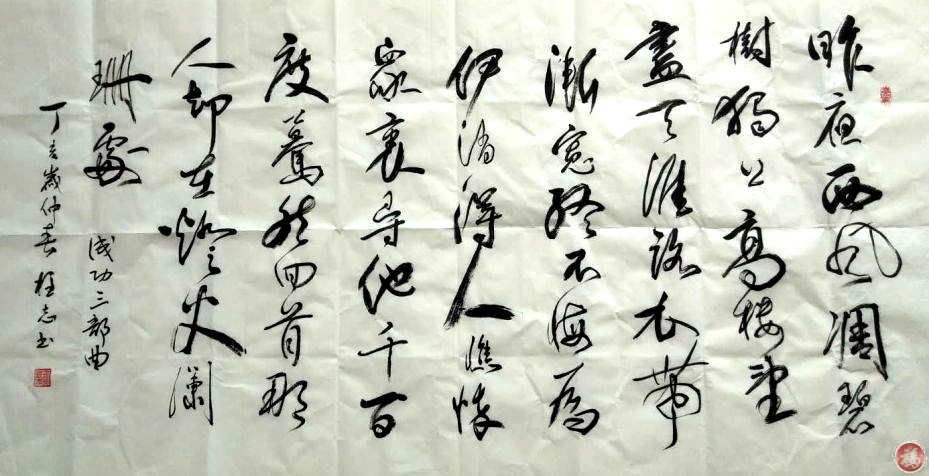 昨夜西风凋碧
樹獨上高楼望
盡天涯路衣带
渐宽终不悔为
伊消得人憔悴
众里寻他千百
度蓦然回首那
人却在灯火阑
珊處
成功三部曲
丁亥歲仲春桂志书
福